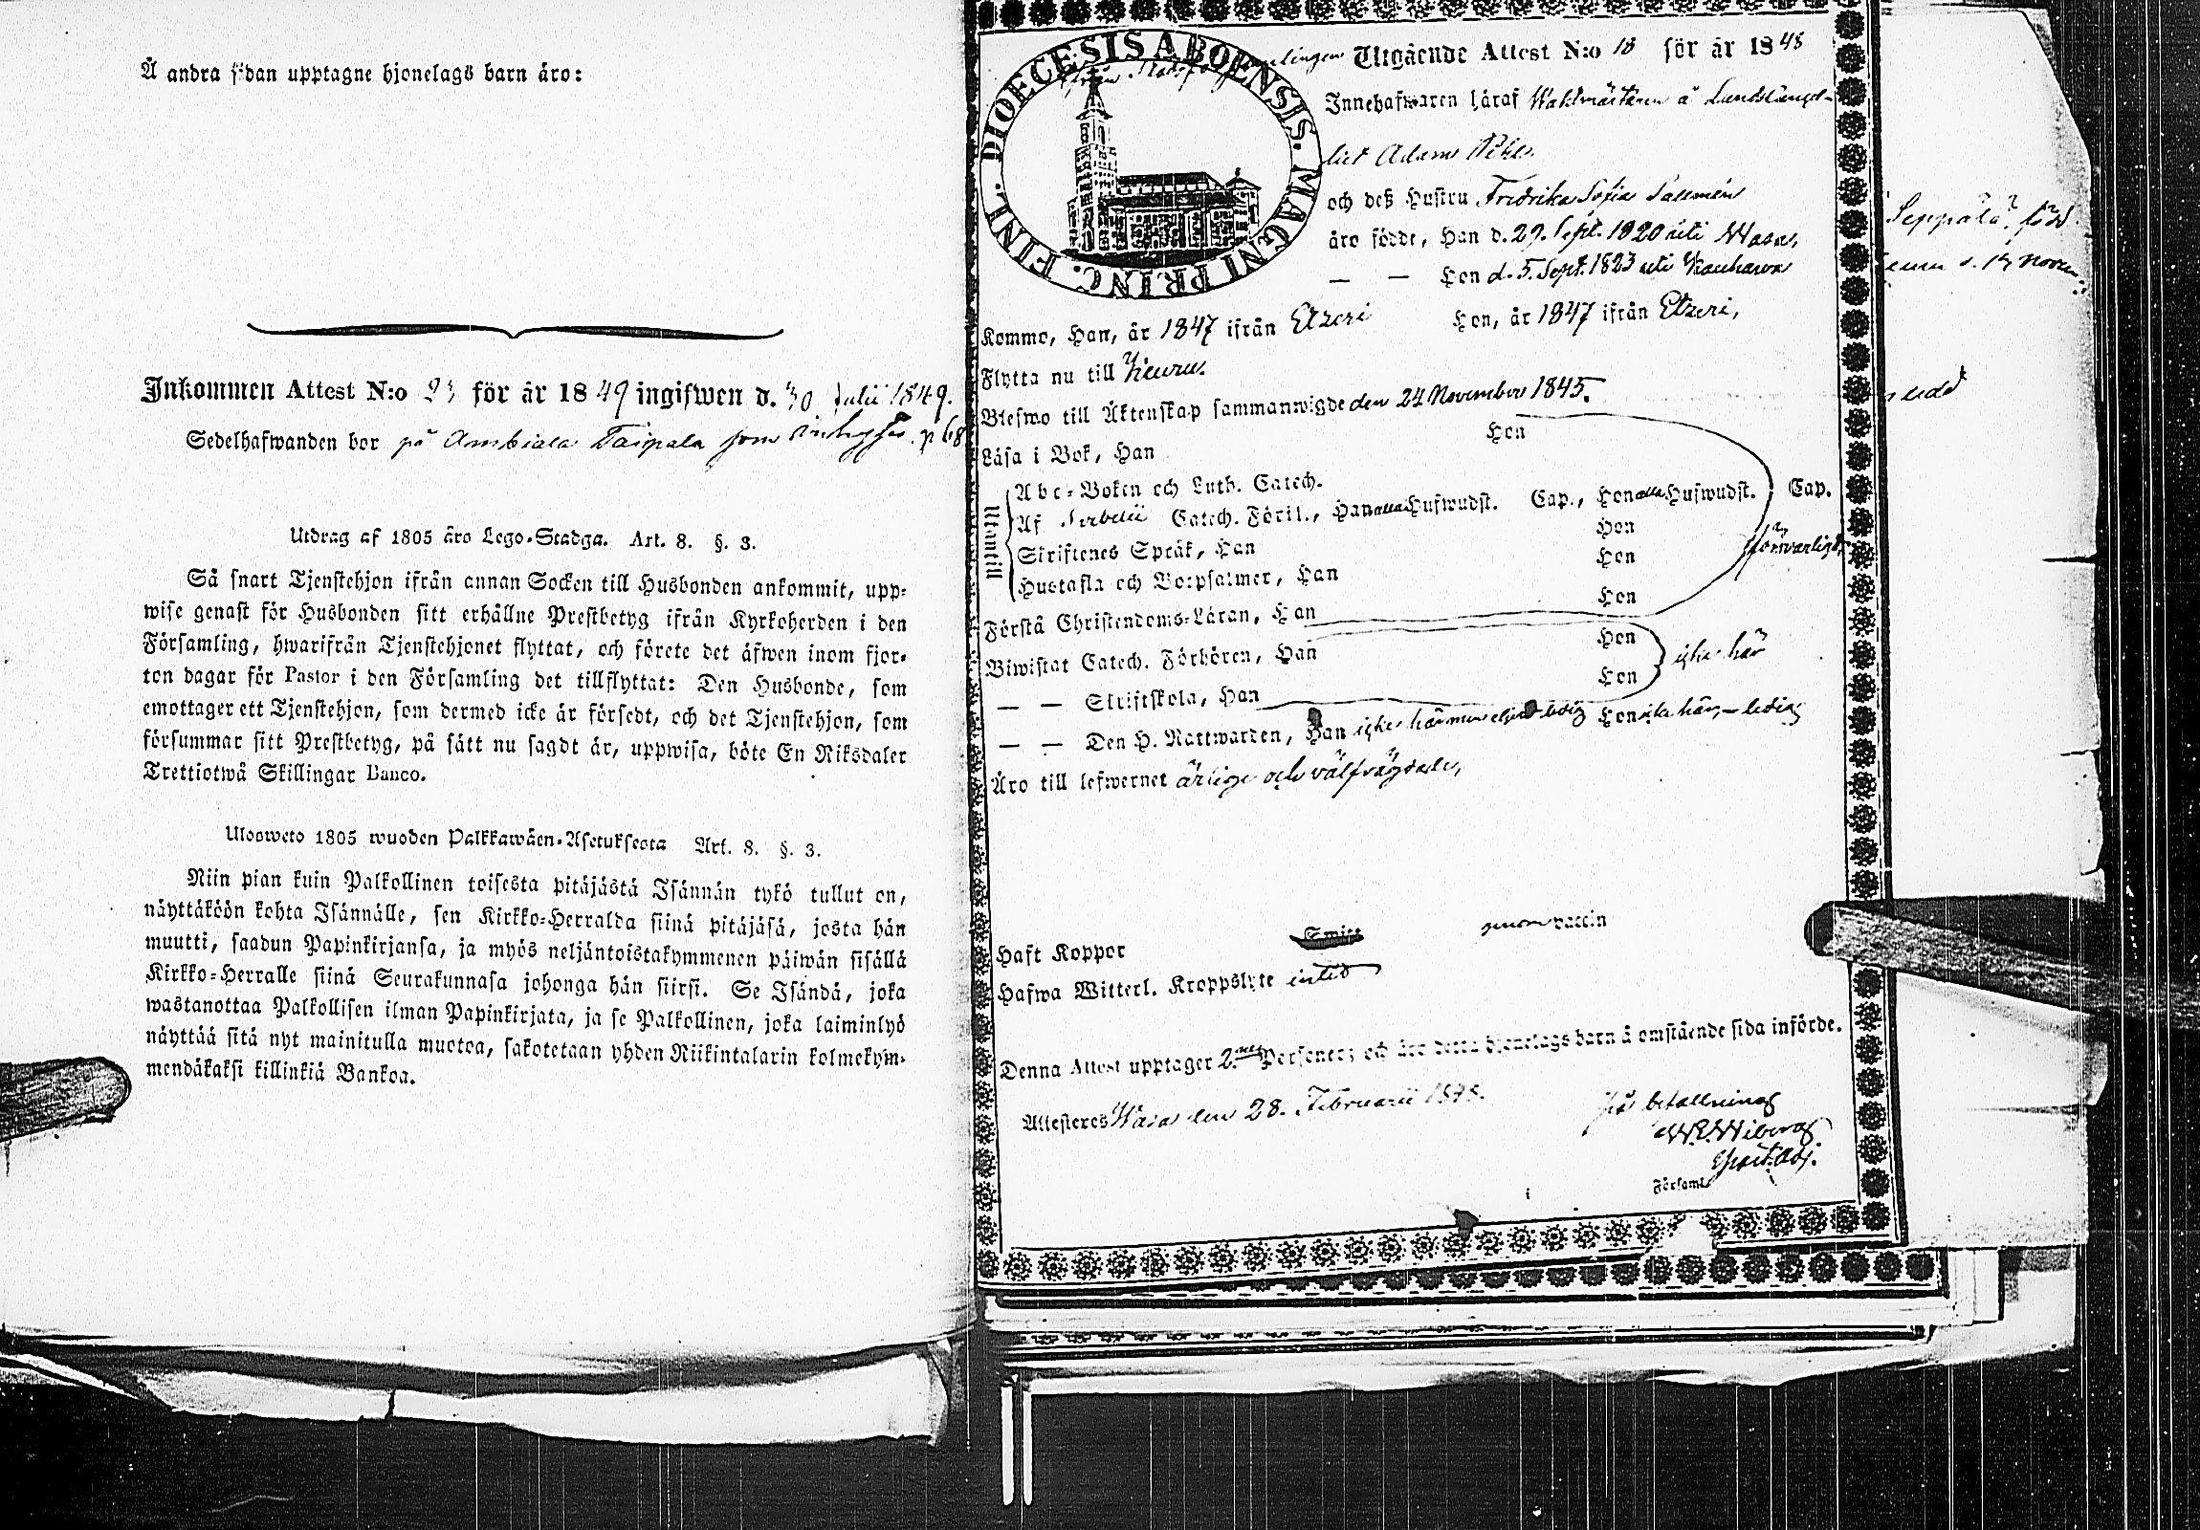 Å andra sidan upptagne hjonelags barn äro:
Inkommen Attest N:o 23 för år 1849 ingifwen d. 30 Julii 1849.
Sedelhafwanden bor på Ambiala Taipala som p 68
Utdrag af 1805 års Lego-Stadga. Art. 8. §. 3.
Så snart Tjenstehjon ifrån annan Socken till Husbonden ankommit, upp-
wise genast för Husbonden sitt erhållne Prestbetyg ifrån Kyrkoherden i den
Församling, hwarifrån Tjenstehjonet flyttat, och förete det äfwen inom fjor-
ton dagar för Pastor i den Församling det tillflyttat: Den Husbonde, som
emottager ett Tjenstehjon, som dermed icke är försedt, och det Tjenstehjon, som
försummar sitt Prestbetyg, på sätt nu sagdt är, uppwisa, böte En Riksdaler
Trettiotwå Skillingar Banco.
Ulosweto 1805 wuoden Palkkawäen-Asetuksesta Art. 8. §. 3.
Niin pian kuin Palkollinen toisesta pitäjästä Isännän tykö tullut on,
näyttäköön kohta Isännälle, sen Kirkko-Herralda siinä pitäjäsä, josta hän
muutti, saadun Papinkirjansa, ja myös neljäntoistakymmenen päiwän sisällä
Kirkko-Herralle siinä Seurakunnasa johonga hän siirsi. Se Isändä, joka
wastanottaa Palkollisen ilman Papinkirjata, ja se Palkollinen, joka laiminlyö
näyttää sitä nyt mainitulla muotoa, sakotetaan yhden Riikintalarin kolmekym-
mendäkaksi killinkiä Bankoa.
DIOECESIS ABOENSIS. MAGNI PRINC. FINL.
Utgående Attest N:o 18 för år 1848
Innehafwaren häraf Waktmästaren å Landskansl-
liet Adam
och deß Hustru Fredrika Sofia Sallmén
äro födde, Han d. 29. Sept. 1820 uti Wasa,
— — Hon d. 5. Sept. 1823 uti Kauhawa
Kommo, Han, år 1847 ifrån Etzeri Hon, år 1847 ifrån Etzeri,
Flytta nu till Keuru.
Blefwo till Äktenskap sammanwigde den 24 November 1845.
Läsa i Bok, Han Hon
Utantill
Abc-Boken och Luth. Catech.
Af Catech. Förkl., Han alla Hufwudst. Cap., Hon alla Hufwudst. Cap.
Skriftenes Språk, Han Hon
Hustafla och Botpsalmer, Han Hon
försvarligt
Förstå Christendoms-Läran, Han Hon
Biwistat Catech. Förhören, Han Hon
— — Skriftskola, Han Hon
icke här
— — Den H. Nattwarden, Han icke här men ledig Hon icke här, – ledig
Äro till lefwernet ärlige och välfrägdade,
Haft Koppor genom vaccin
Hafwa Witterl. Kroppslyte intet
Denna Attest upptager 2.ne Personer; och äro detta hjonelags barn å omstående sida införde.
Attesteres Wasa den 28. Februarii 1848.
W. E. Wiberg
Församl.
Seppälä, född